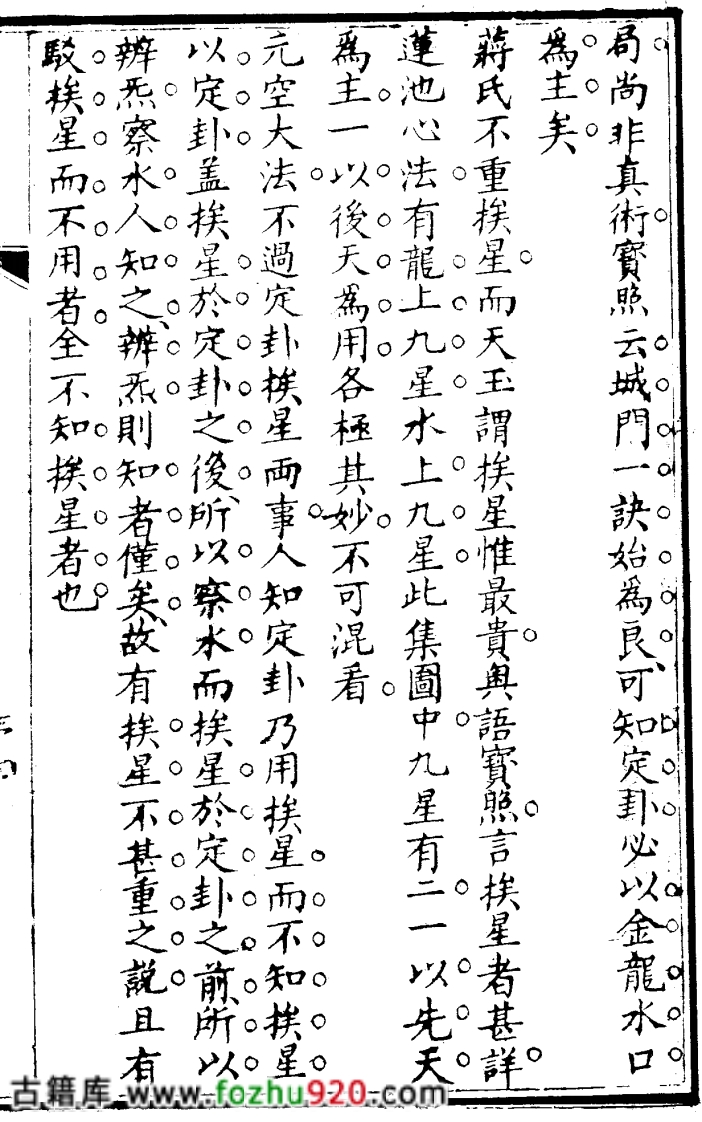 局尚非真術寳照云城門一訣始為良可知定卦必以金龍水口
為主矣
蔣氏不重挨星而天玉謂挨星惟最貴奥語寳照言挨星者甚詳
蓮池心法有龍上九星水上九星此集圖中九星有二一以先天
為主一以後天為用各極其妙不可混看
元空大法不過定卦挨星兩事人知定卦乃用挨星而不知挨星
以定卦盖挨星於定卦之後所以察水而挨星於定卦之前所以
辨炁察水人知之辨炁則知者僅矣故有挨星不甚重之説且有
駁挨星而不用者全不知挨星者也
古籍库 www.fozhu920.com